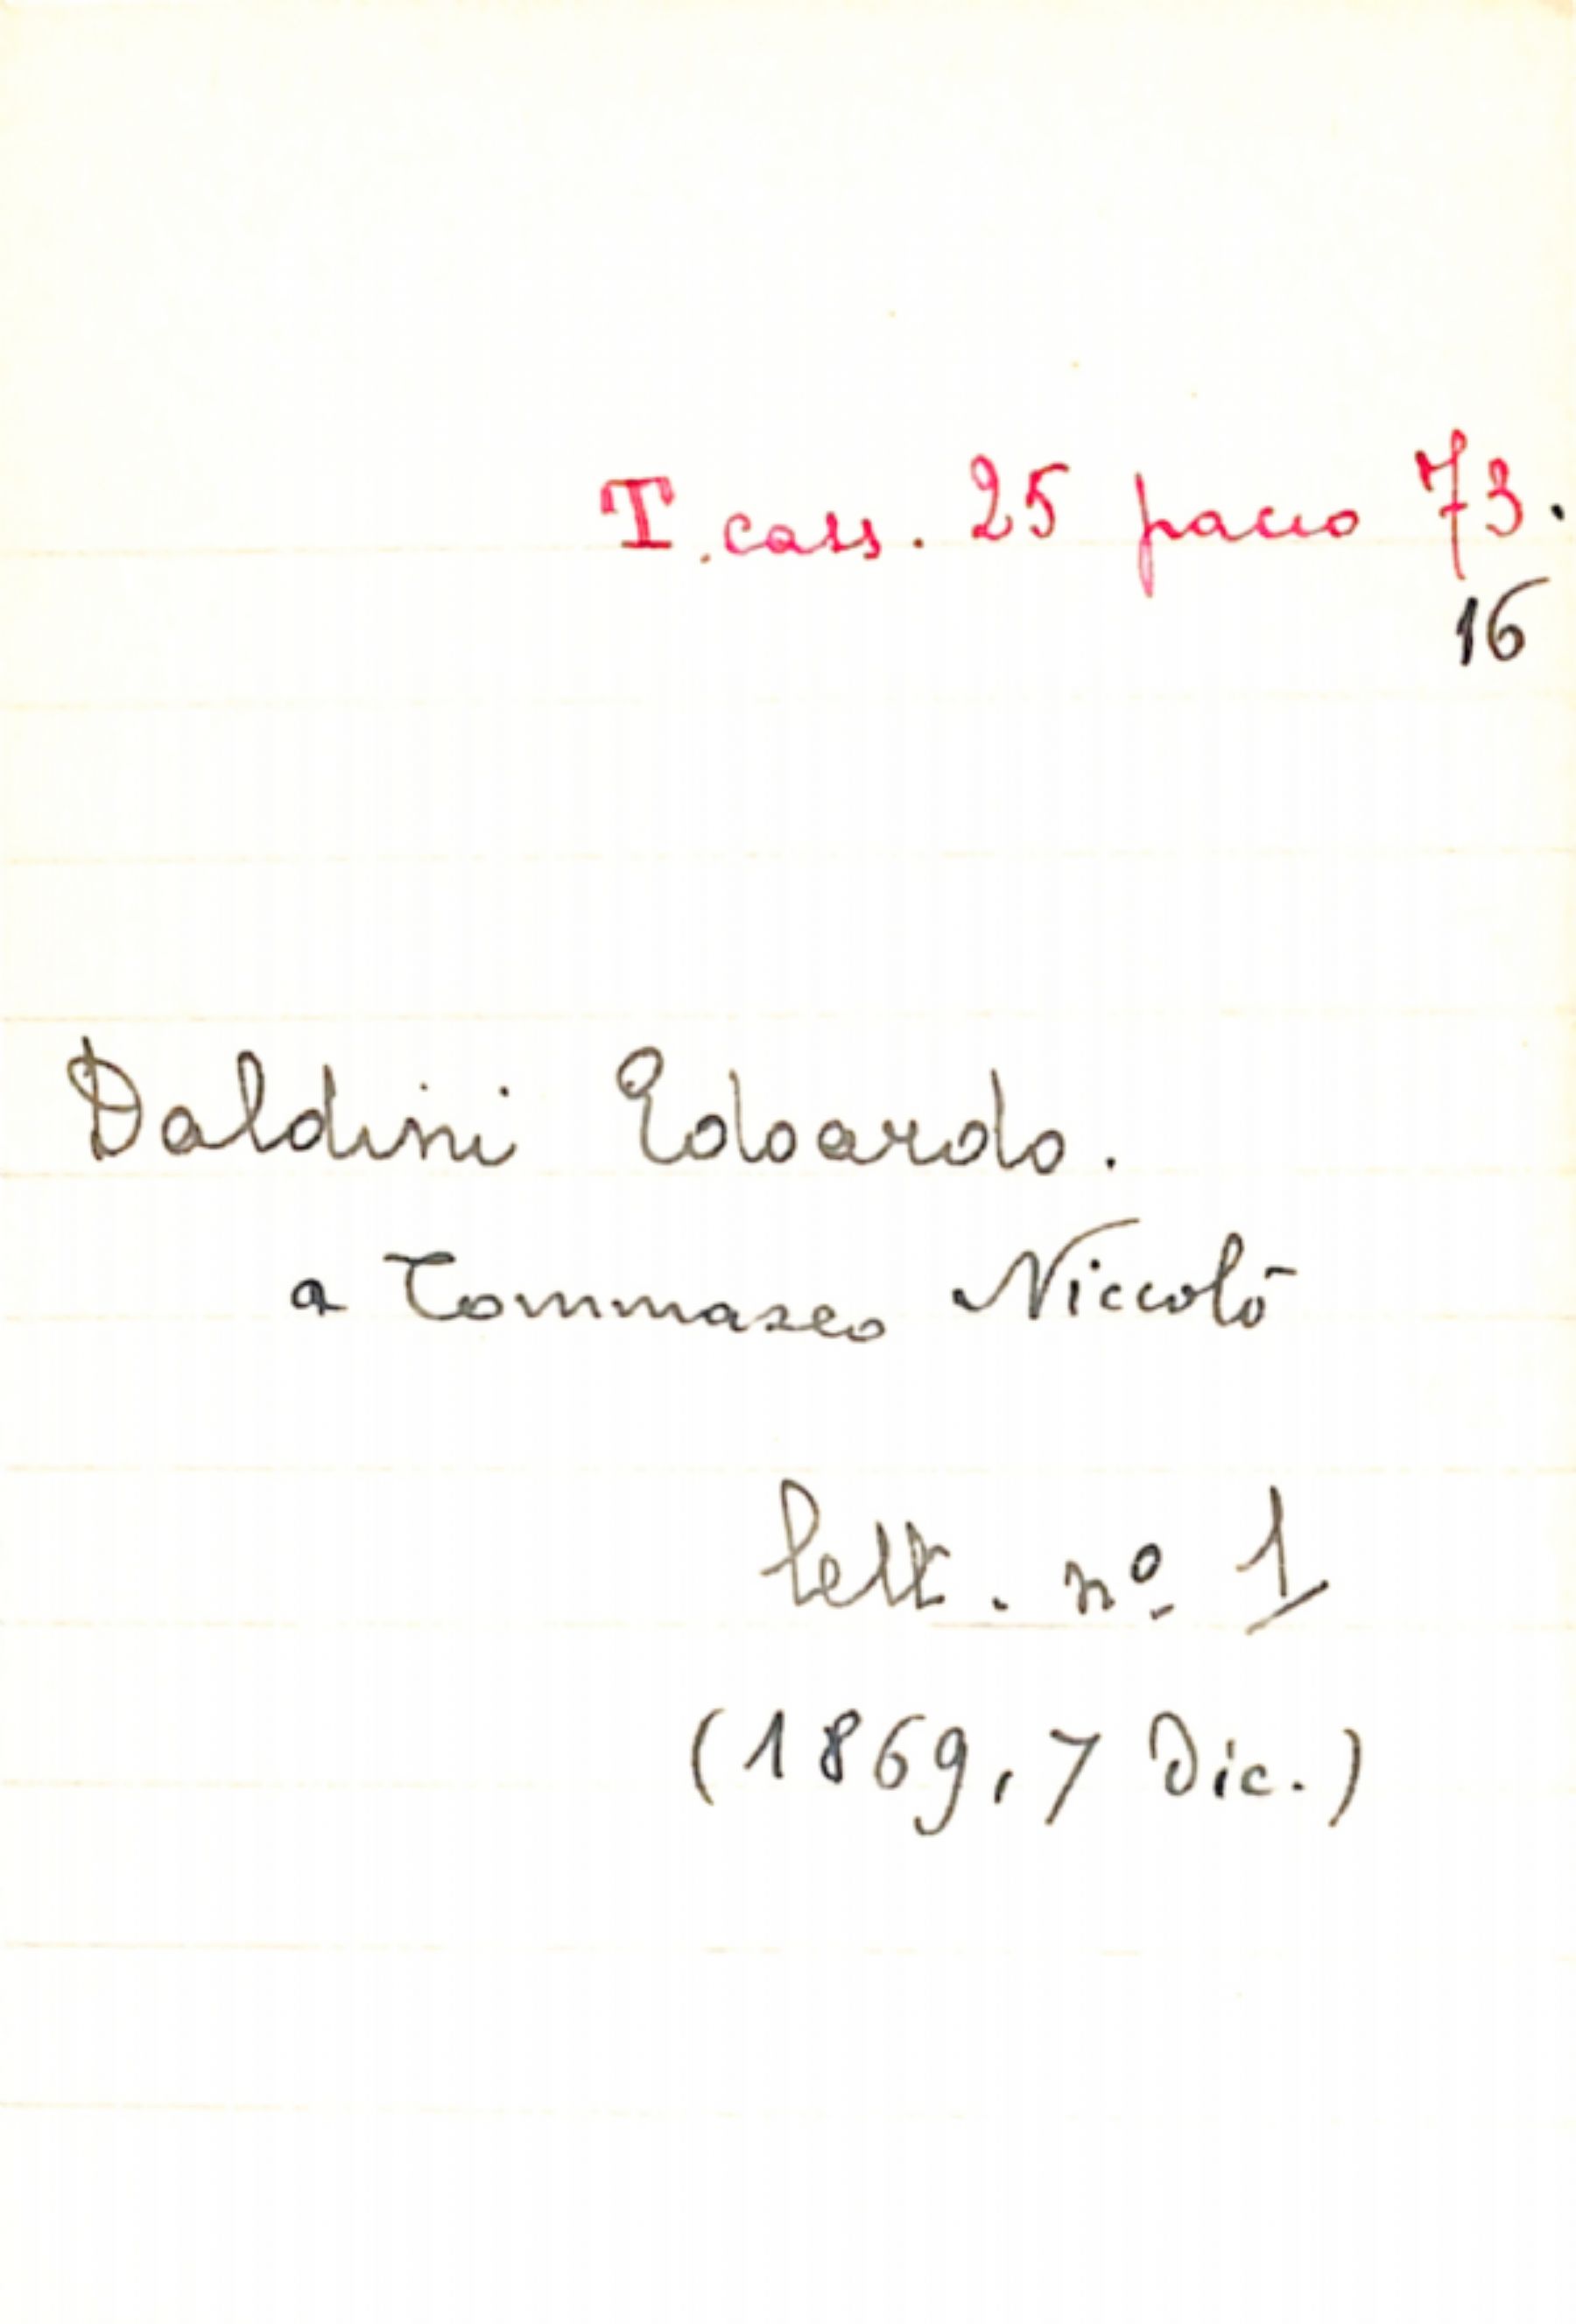 T. cass. 25 pacco 73.
16
Daldini Edoardo.
a Tommaseo Niccolò
lett. nº 1
(1869, 7 Dic.)